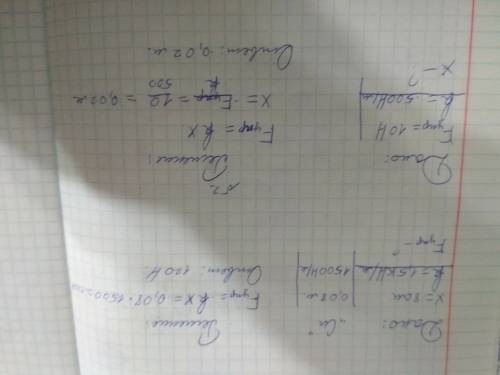 Дано: „Си“ Решение:
x = 8см 0,08м. Fупр = kx = 0,08·1500=
k = 1,5кН/м 1500Н/м Ответ: 120 Н.
Fупр-?
№2
Дано: Решение:
Fупр = 10Н Fупр = kx
k = 500Н/м x = Fупр/k = 10/500 = 0,02м
x-? Ответ: 0,02м.